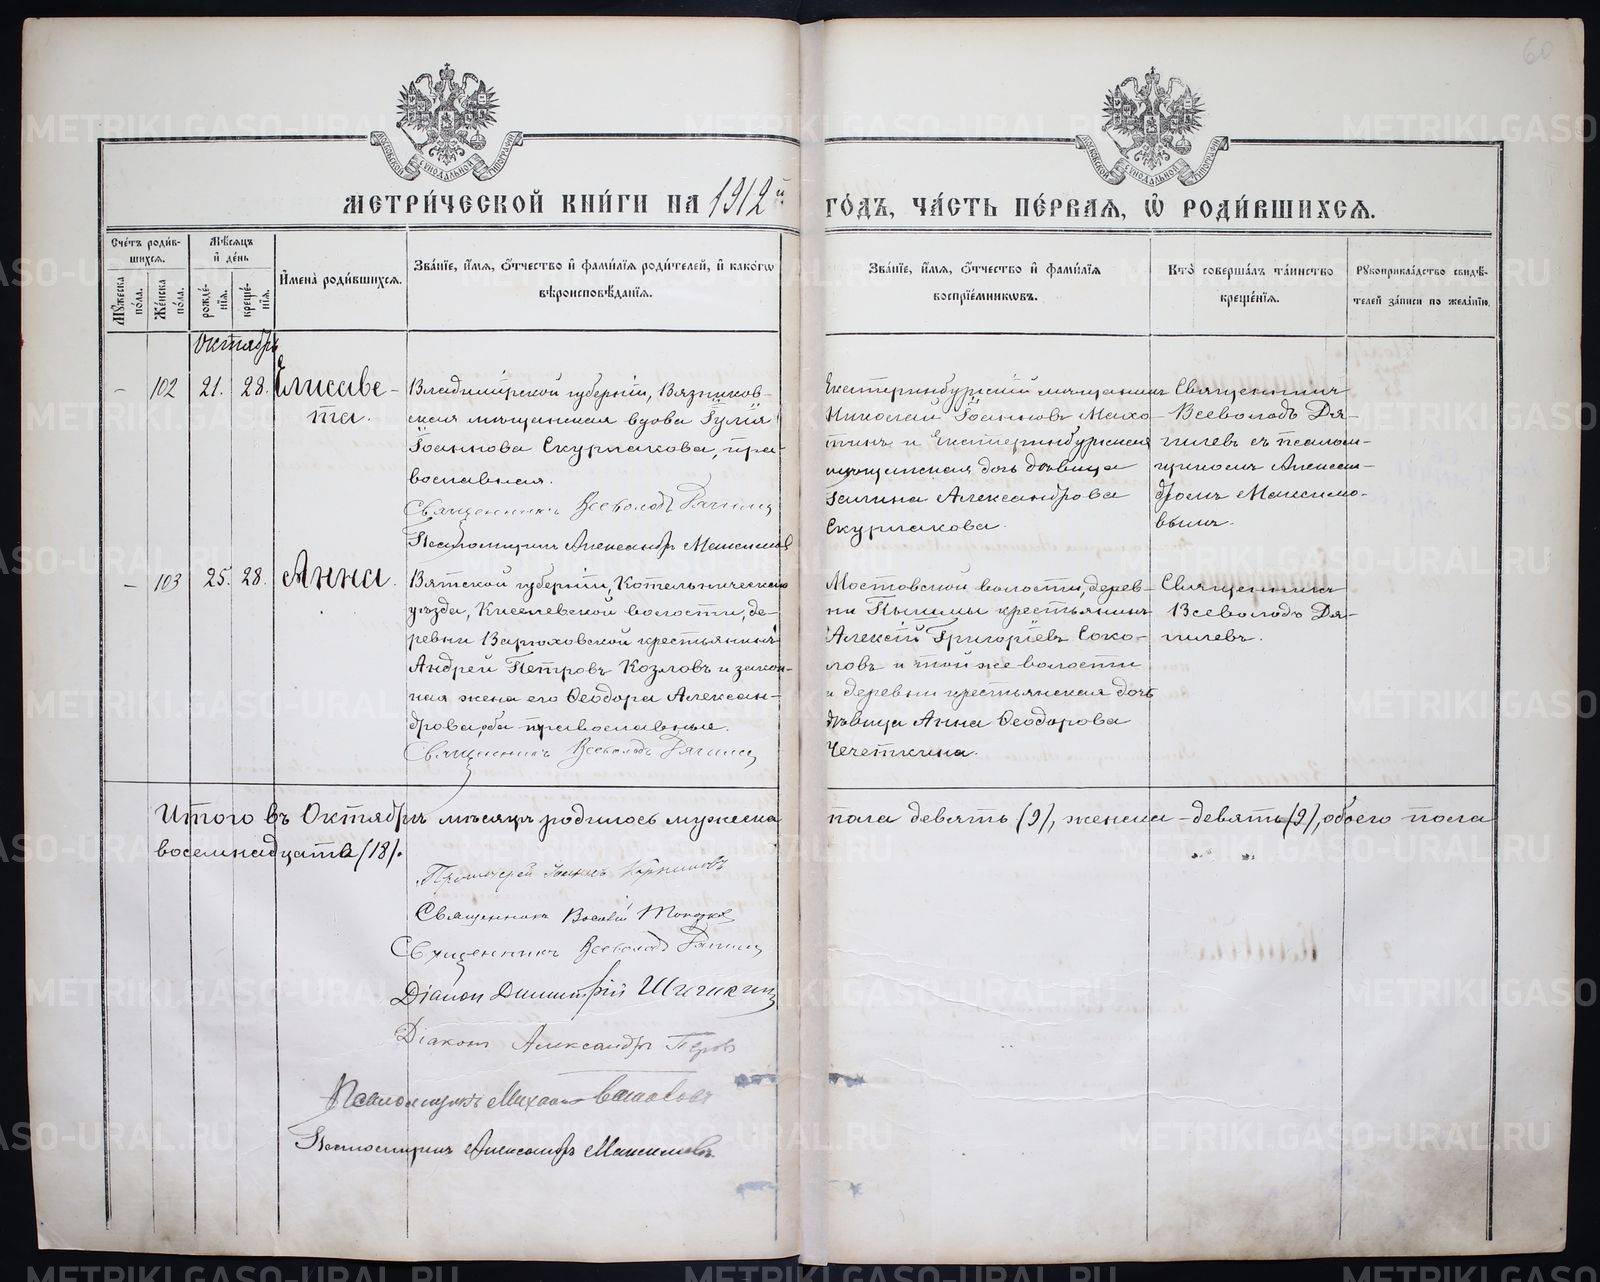 60
МОСКОВСКОЙ СѴНОДАЛЬНОЙ ТИПОГРАФІИ
МОСКОВСКОЙ СѴНОДАЛЬНОЙ ТИПОГРАФІИ
МЕТРИ́ЧЕСКОЙ КНИ́ГИ НА 1912й ГО́ДЪ, ЧА́СТЬ ПЕ́РВАЯ, Ѡ РОДИ́ВШИХСЯ.
Сче́тъ роди́в-
шихся.
Мꙋ́жеска по́ла.
Же́нска по́ла.
Мѣ́сяцъ
и҆ де́нь
рожде́-
нїя.
креще́-
нїя.
И҆мена̀ роди́вшихся.
Зва́нїе, и҆́мя, ѻ҆́тчество и҆ фами́лїя роди́телей, и҆ како́гѡ
вѣроисповѣ́данїя.
Зва́нїе, и҆́мя, ѻ҆́тчество и҆ фами́лїя
воспрїе́мникѡвъ.
Кто̀ соверша́лъ та́инство
креще́нїя.
Рꙋкоприкла́дство свидѣ́-
телей за́писи по жела́нїю.
Октябрь
- 102 21. 28. Елисаве-
та.
Владимірской губерніи, Вязников-
ская мѣщанская вдова Іулія
Іоаннова Скурлакова, пра-
вославная.
Священникъ Всеволодъ Дягилевъ
Псаломщикъ Александръ Максимовъ
Екатеринбургскій мѣщанинъ
Николай Іоанновъ Махо-
тинъ и Екатеринбургская
мѣщанская дочь дѣвица
Галина Александрова
Скурлакова.
Священникъ
Всеволодъ Дя-
гилевъ съ псалом-
щикомъ Алексан-
дромъ Максимо-
вымъ.
- 103 25. 28. Анна.
Вятской губерніи, Котельническаго
уѣзда, Киселевской волости, де-
ревни Варюховской крестьянинъ
Андрей Петровъ Козловъ и закон-
ная жена его Ѳеодора Алексан-
дрова, оба православные.
Священникъ Всеволодъ Дягилевъ
Мостовской волости, дерев-
ни Пышмы крестьянинъ
Алексій Григоріевъ Соко-
ловъ и той же волости
и деревни крестьянская дочь
дѣвица Анна Ѳеодорова
Чечеткина.
Священникъ
Всеволодъ Дя-
гилевъ.
Итого въ Октябрѣ мѣсяцѣ родилось мужеска пола девять (9), женска - девять (9), обоего пола
восемнадцать (18).
Протоіерей Іоаннъ
Священникъ
Священникъ Всеволодъ Дягилевъ
Діаконъ Димитрій Шишкинъ
Діаконъ Александръ Перовъ
Псаломщикъ Михаилъ
Псаломщикъ Александръ Максимовъ
METRIKI.GASO-URAL.RU